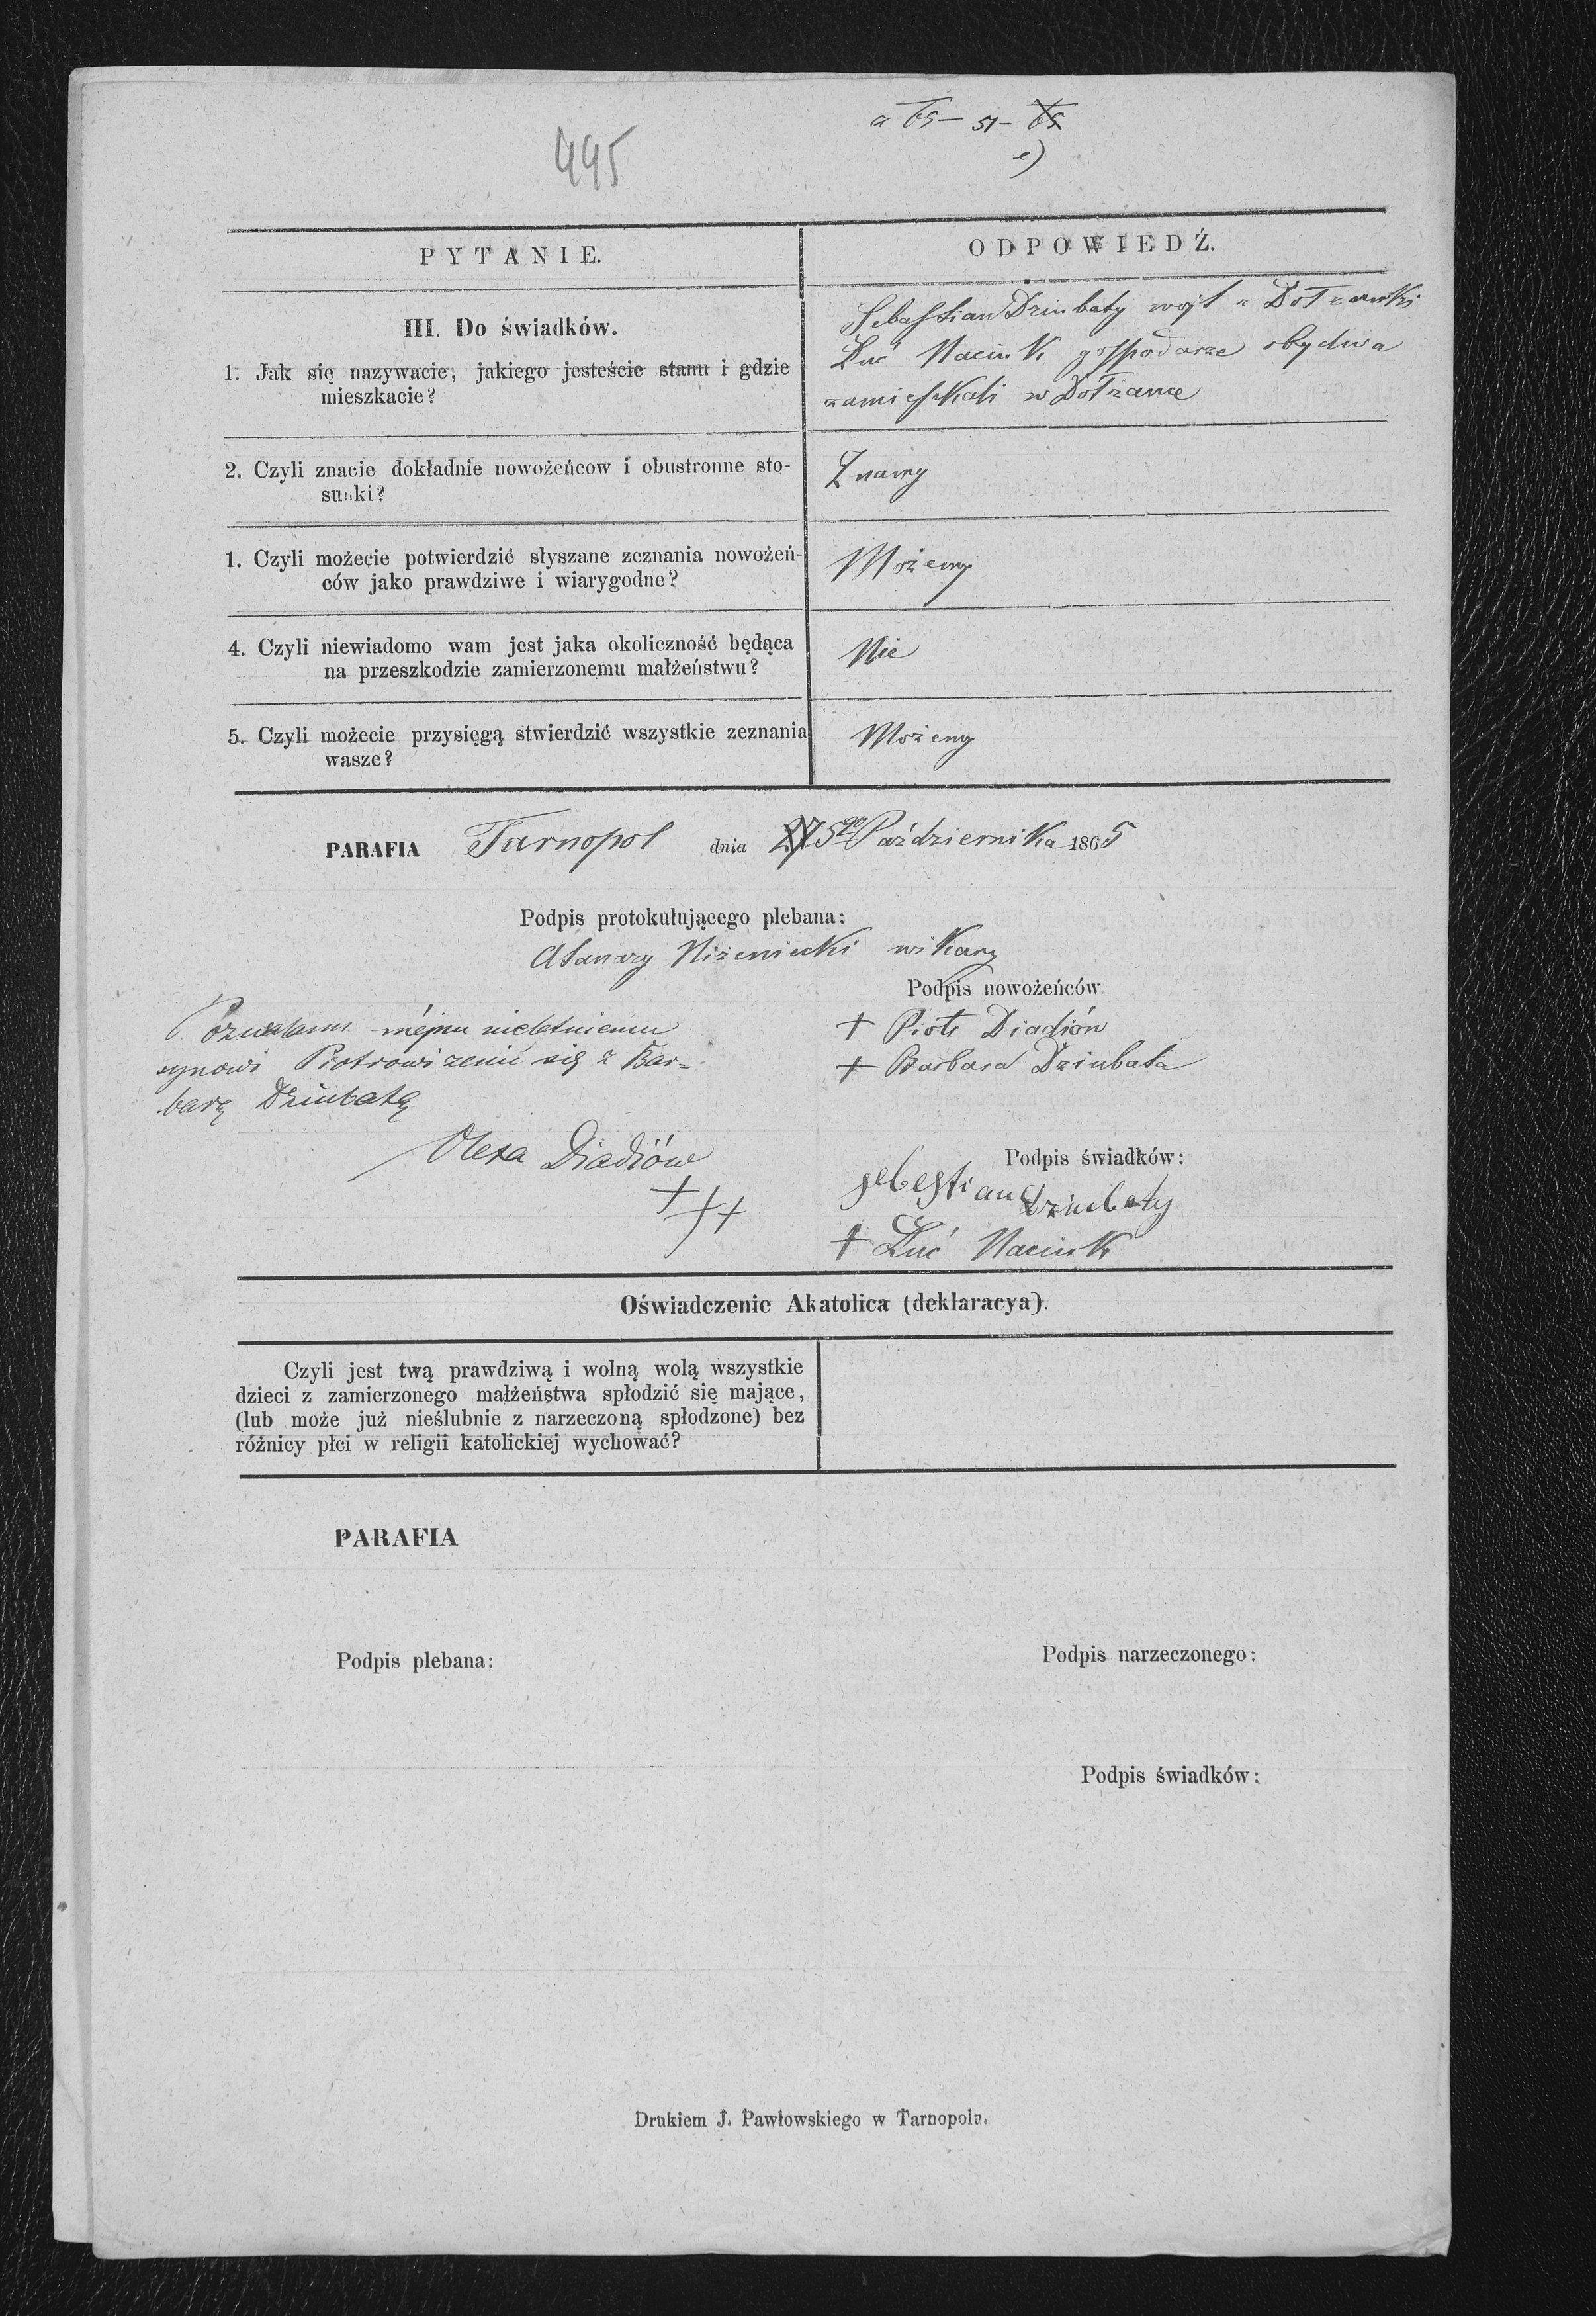 495
PYTANIE.
ODPOWIEDŹ.
III. Do świadków.
1. Jak się nazywacie, jakiego jesteście stanu i gdzie
mieszkacie?
Sebastian Dziubaty wojt z Dołzanki
Luć Naciuk gospodarze obydwa
zamieszkali w Dołżance
2. Czyli znacie dokładnie nowożeńcow i obustronne sto-
sunki?
Znamy
1. Czyli możecie potwierdzić słyszane zeznania nowożeń-
ców jako prawdziwe i wiarygodne?
Możemy
4. Czyli niewiadomo wam jest jaka okoliczność będąca
na przeszkodzie zamierzonemu małżeństwu?
Nie
5. Czyli możecie przysięgą stwierdzić wszystkie zeznania
wasze?
Możemy
PARAFIA Tarnopol dnia 5go Października 1865
Podpis protokułującego plebana:
Atanazy Niżeniecki wikary
Podpis nowożeńców
+ Piotr Diadiów
+ Barbara Dziubata
Pozwalam mojmu nieletniemu
synowi Piotrowi zenić się z Bar=
barą Dziubatą
Olexa Diadiów
+++
Podpis świadków:
Sebestian Dziubaty
+ Luć Naciuk
Oświadczenie Akatolica (deklaracya).
Czyli jest twą prawdziwą i wolną wolą wszystkie
dzieci z zamierzonego małżeństwa spłodzić się mające,
(lub może już nieślubnie z narzeczoną spłodzone) bez
różnicy płci w religii katolickiej wychować?
PARAFIA
Podpis plebana:
Podpis narzeczonego:
Podpis świadków:
Drukiem J. Pawłowskiego w Tarnopolu.